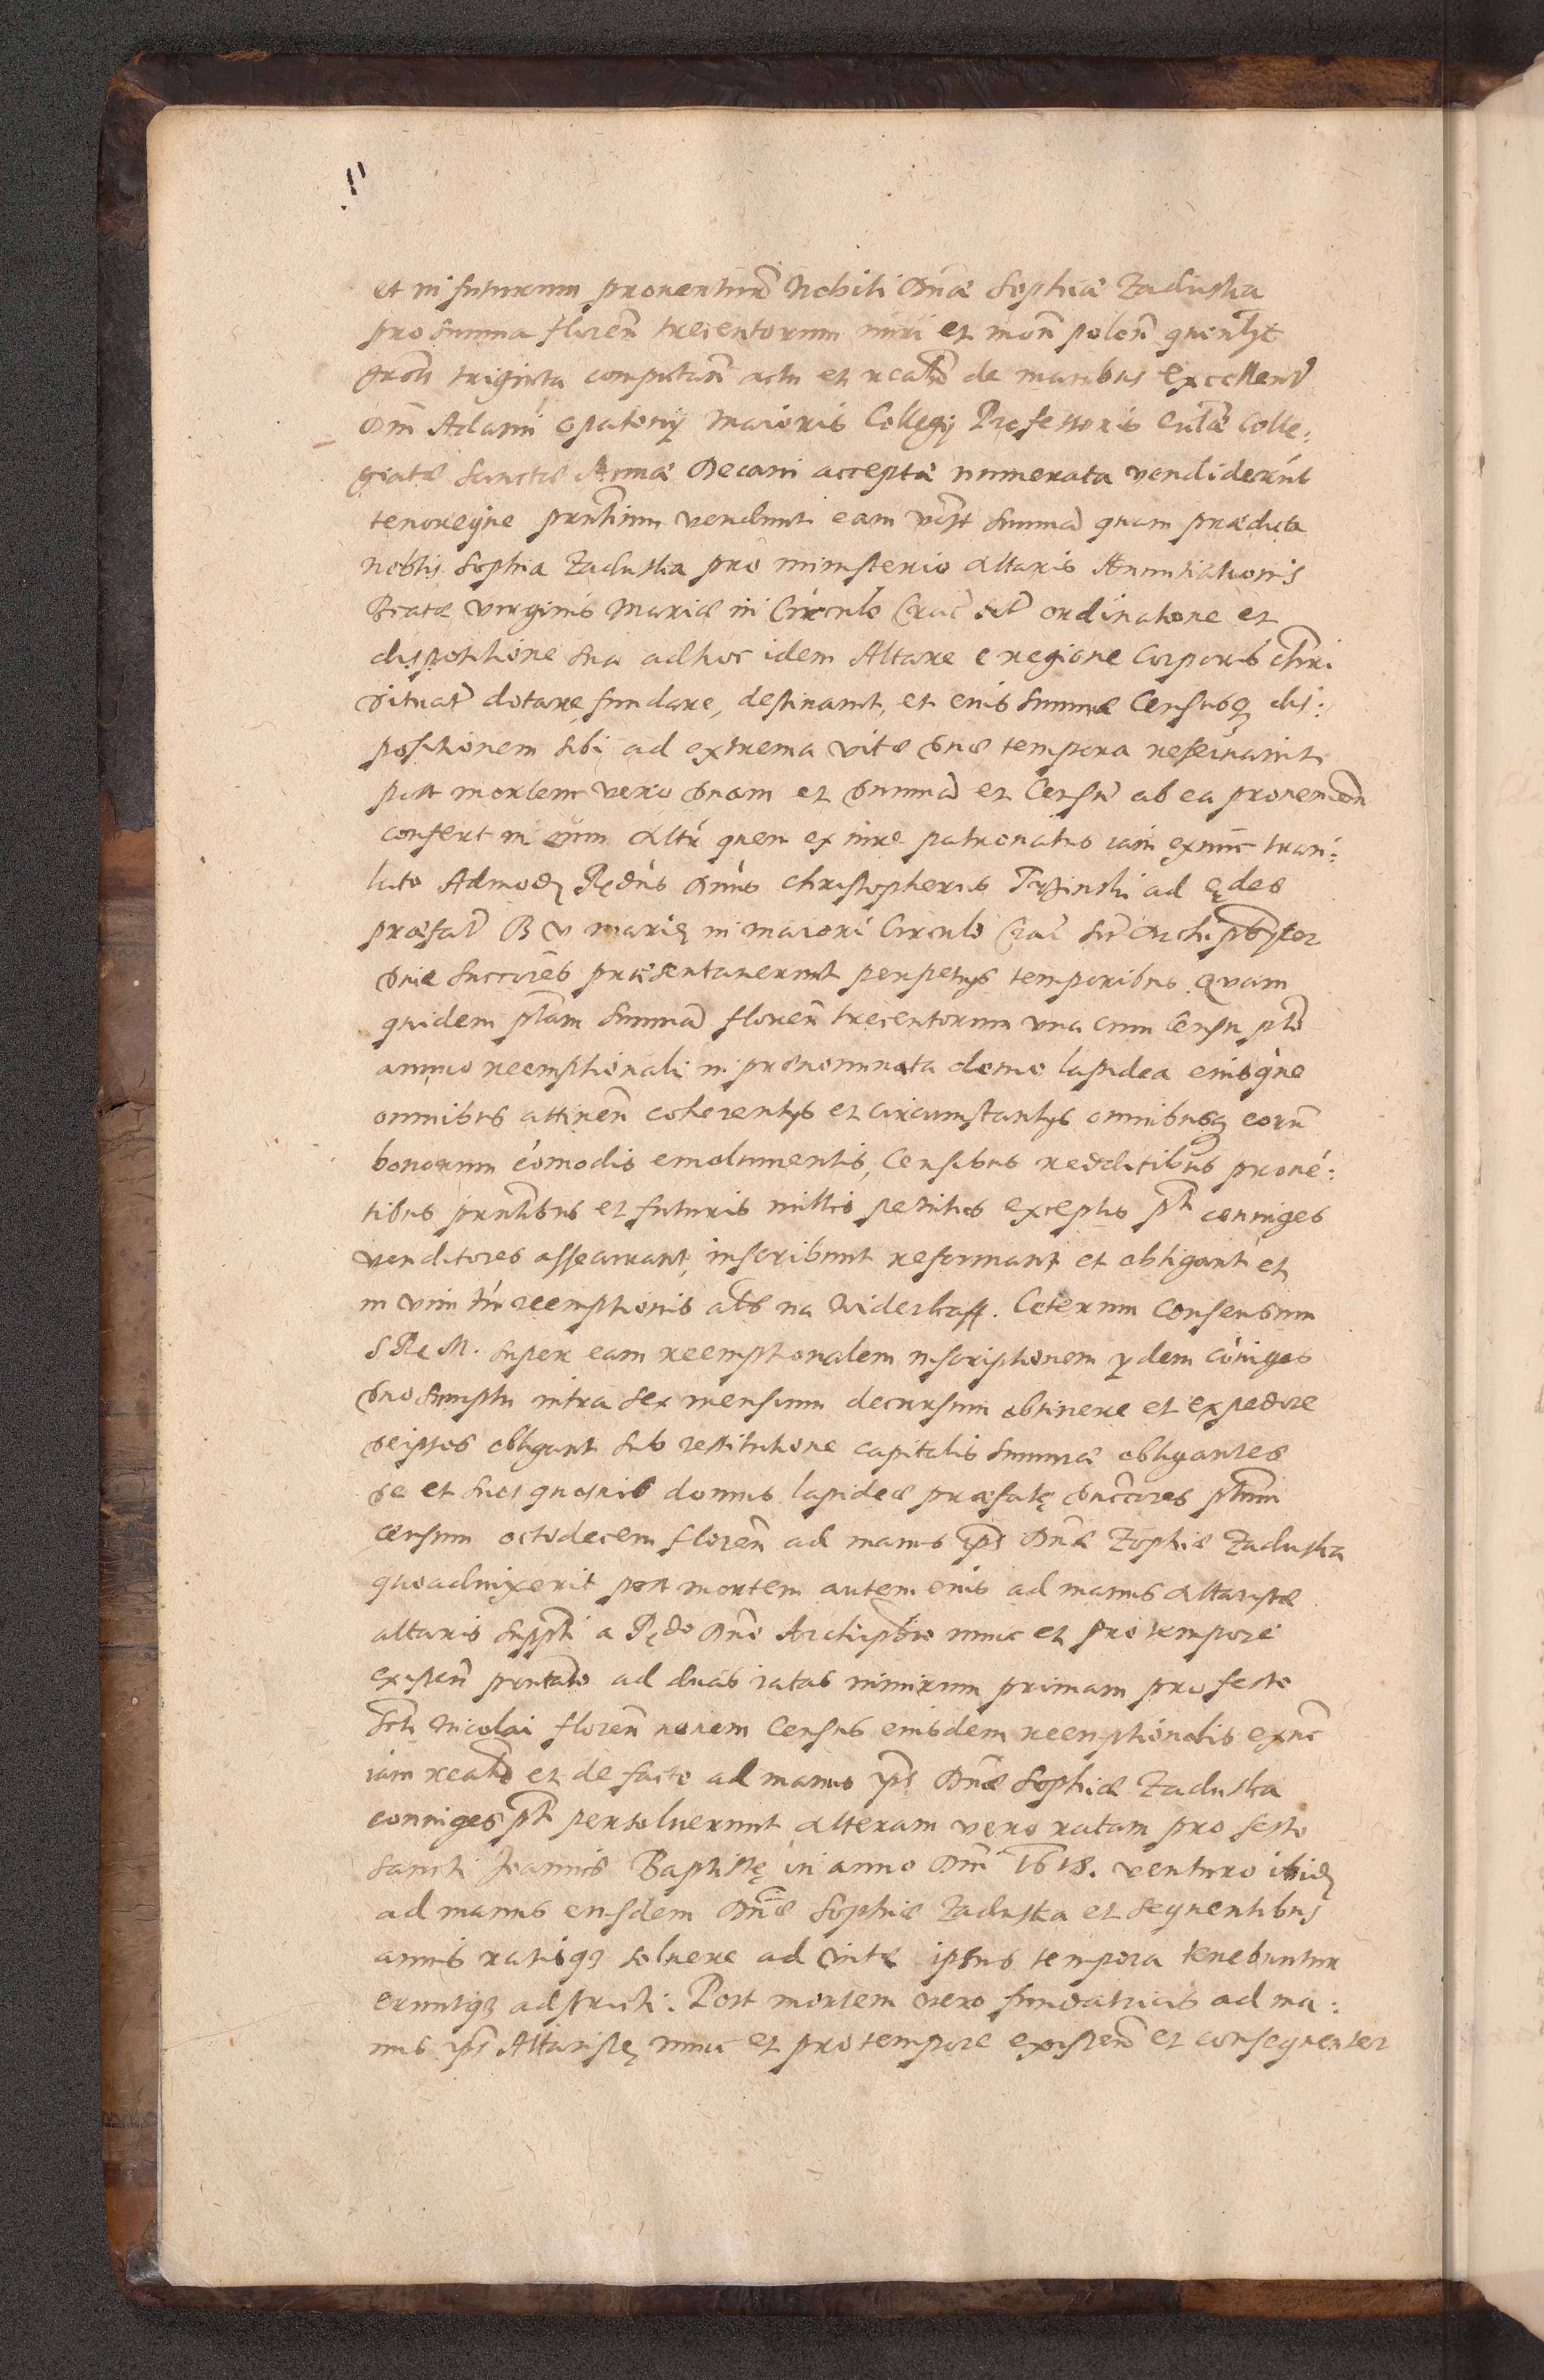 et in futurum prouenturū Nobili Dnæ Sophiæ Zaduska
pro summa floren̄ trecentorum mri et mon̄ polon̄ quenlꝫt
grosū triginta computan̄ actu et realr̄ de manibus Excellenᵗ
Dni Adami Opatouij Maioris Collegij Professoris Eccltæ Colle:
giatæ Sanctæ Annæ Decani acceptæ numerata vendiderunt
tenoreque pruntium vendunt eam vidlt summā quam prædicta
nobilis Sophia Zaduska pro ministerio Altaris Annuntiationis
Beatæ Virginis Mariæ in Circulo Crac̄ sit̄ ordinatione et
dispositione sua adhuc idem Altare e regione Corporis Chri
situat̄ dotare, fundare, destinauit, et eius summæ Censusqꝫ dis:
positionem sibi ad extrema vitæ suæ tempora reseruauit
post mortem vero suam et summā et Censū ab ea prouenien̄
confert in eum Altr̄ quem ex iure patronatus iam exnunc trans:
lato Admodꝫ Rꝫdus Dnus Christopherus Trzinski ad ędes
præfat̄ B V Marię in maiori Circulo Crac̄ sit̄ Archipr̄byter
suiæ succores præsentauerint perpetuis temporibus. Quam
quidem pt̄am summā floren̄ trecentorum vna cum Censu pt̄o
annuo reemptionali in prænominata domo lapidea eiusque
omnibus attinen̄ coherentijs et circumstantijs omnibusqꝫ eorū
bonorum com̄odis emolumentis, Censibus redditibus prouē:
tibus prūtibus et futuris nullis penitus exceptis pt̄i coniuges
venditores assecurant, inscribunt reformant et obligant et
in vim tm̄ reemptionis als̄ na Widerkaff. Ceterum Consensum
S R M. super eam reemptionalem inscriptionem ijdem cōniges
suo sumptu intra sex mensium decursum obtinere et expedire
seipsos obligant sub restitutione capitalis summæ obligantes
se et suos quosuis domus lapideæ præfatę succores pt̄um
censum octodecem floren̄ ad manus ips̄ Dnæ Zophiæ Zaduska
quoaduixerit post mortem autem eius ad manus Altaristæ
altaris suppt̄i a Rꝫdo Dno Archipr̄bro nunc et pro tempore
existen̄ prn̄tato ad duas ratas nimirum primam pro festo
Scti Nicolai floren̄ nouem Census eiusdem reemptionalis exnc̄
iam realr̄ et de facto ad manus ips̄ Dnæ Sophiæ Zaduska
coniuges pt̄i persoluerunt alteram vero ratam pro festo
Sancti Joannis Baptistę in anno Dni 1618. venturo ibidꝫ
ad manus eiusdem Dnæ Sophiæ Zaduska et sequentibus
annis ratisqꝫ soluere ad vitæ ipsius tempora tenebuntur
eruntqꝫ adstricti. Post mortem vero fundatricis ad ma:
nus ips̄ Altaristę nunc et pro tempore existen̄ et consequenter